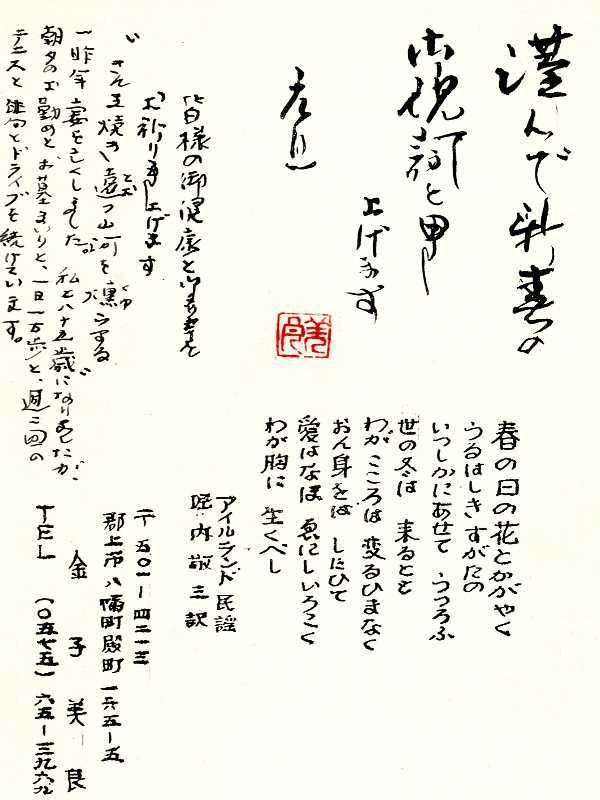 謹んで新春の
御祝詞を申し
上げます
元旦
皆様の御健康と御多幸を
お祈り申し上げます
焼き遠つ山河を燻らする
一昨年妻を亡くしました。私も八十五歳になりましたが、
朝夕のお勤めとお墓まいりと、一日一万歩と、週二回の
テニスと俳句とドライブを続けています。
春の日の花とかがやく
うるはしきすがたの
いつしかにあせて うつろふ
世の冬は 来るとも
わがこころは 変るひまなく
おん身をば したひて
愛はなほ いろこく
わが胸に 生くべし
アイルランド民謡
堀内敬三訳
郡上市八幡町殿町一六五-五
金子美良
TEL (〇五七五)六五-三九六九